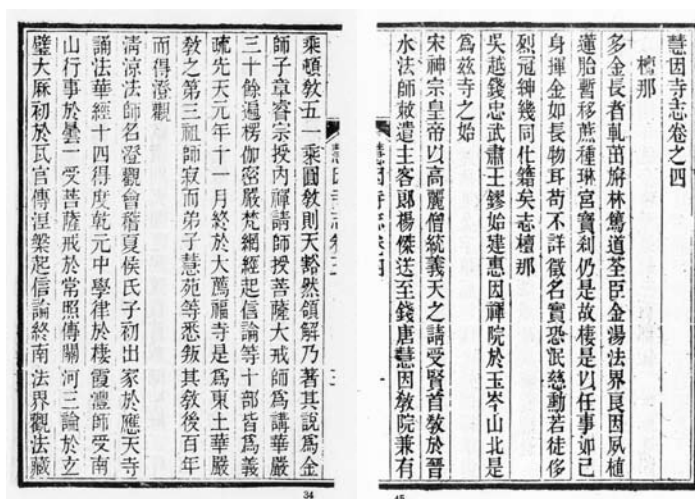 慧因寺志卷之四
檀那
多金長者軋茁林篤道荃臣金湯法界良因夙植
蓮胎暫移蔗種琳宮寶刹仍是故棲是以任事如己
身揮金如長物耳苟不詳徵名實恐泯慈勳若徒侈
烈冠紳幾同仕籍矣志檀那
吳越錢忠武肅王鏐始建惠因禪院於玉岑山北是
爲茲寺之始
宋神宗皇帝以高麗僧統義天之請受賢首教於晉
水法師敕遣主客郎楊傑送至錢唐慧因教院兼有
慧因寺志卷之四
一
45
乘頓教五一乘圓教則天豁然領解乃著其說爲金
師子章睿宗授內禪請師授菩薩大戒師爲講華嚴
三十餘遍楞伽密嚴梵網經起信論等十部皆爲義
疏先天元年十一月終於大薦福寺是爲東土華嚴
教之第三祖師寂而弟子慧苑等悉叛其教後百年
而得澄觀
淸涼法師名澄觀會稽夏侯氏子初出家於應天寺
誦法華經十四得度乾元中學律於棲霞澧師受南
山行事於曇一受菩薩戒於常照傳關河三論於玄
璧大厤初於瓦官傳涅槃起信論終南法界觀法藏
34